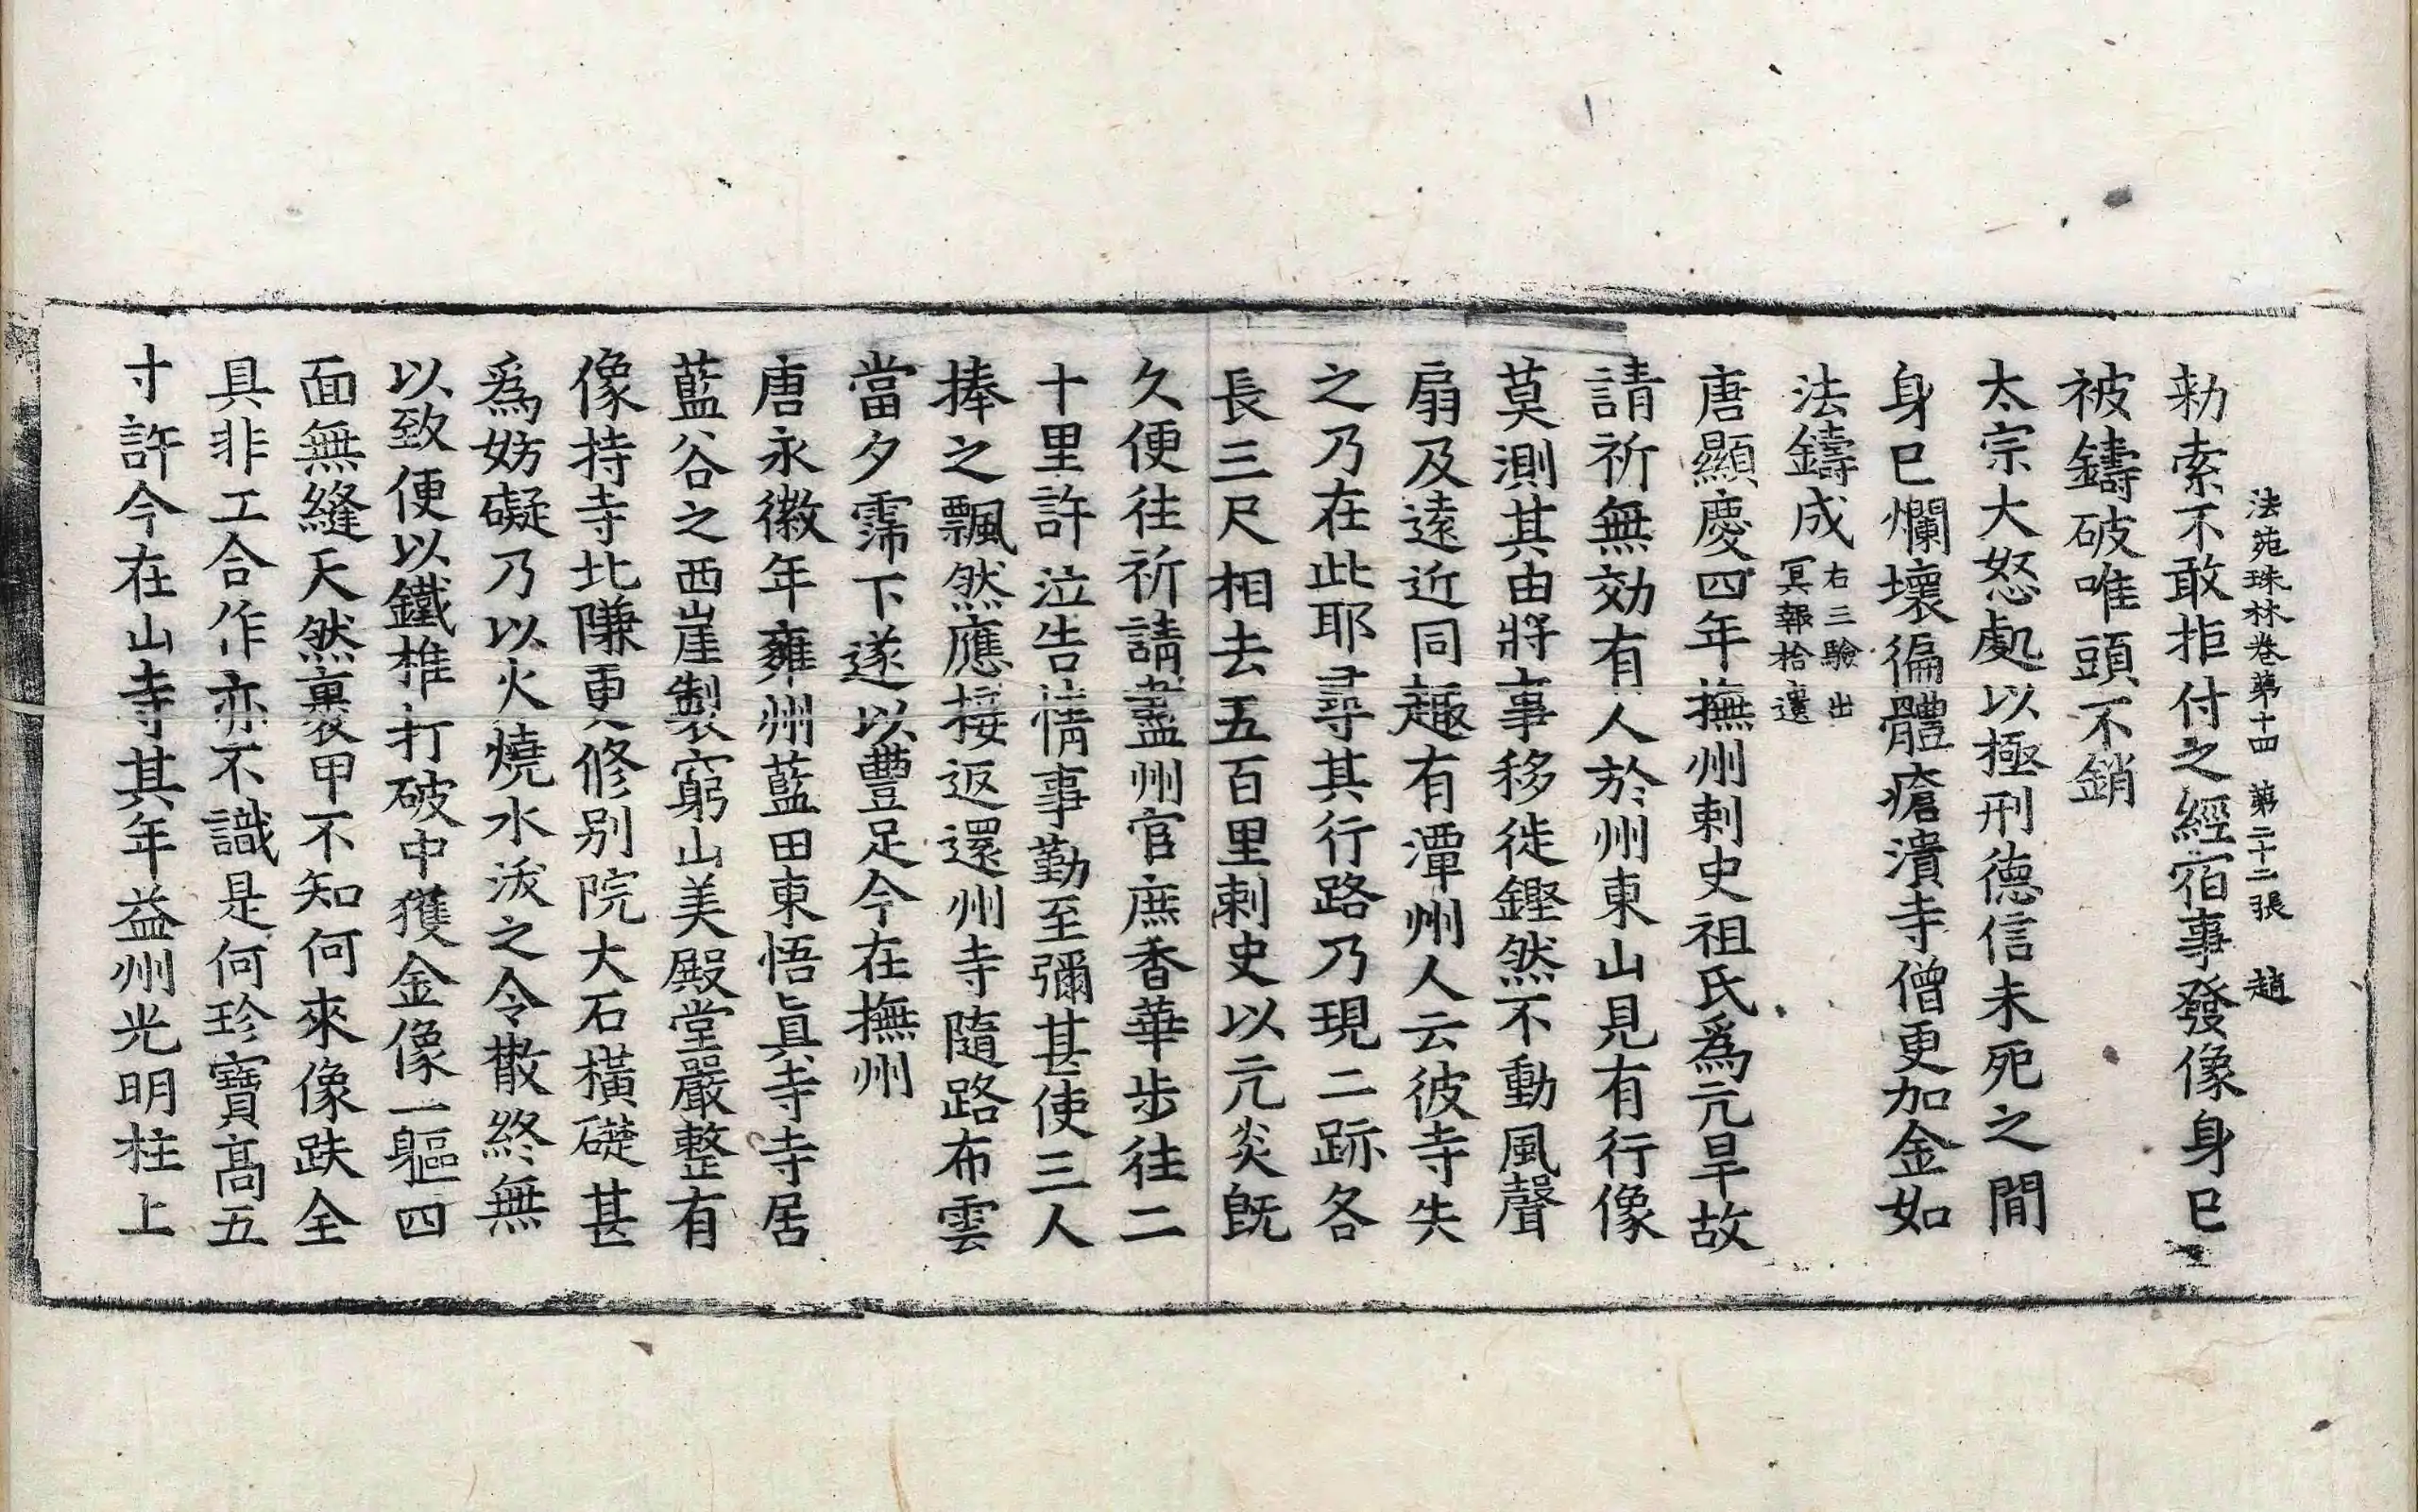 法苑珠林卷第十四 第二十二張 趙
勑索不敢拒付之經宿事發像身巳
被鑄破唯頭不銷
太宗大怒處以極刑德信未死之間
身巳爛壞徧體瘡潰寺僧更加金如
法鑄成右三驗出
冥報拾遺
唐顯慶四年撫州刺史祖氏爲亢旱故
請祈無効有人於州東山見有行像
莫測其由將事移徙鏗然不動風聲
扇及遠近同趣有潭州人云彼寺失
之乃在此耶尋其行路乃現二跡各
長三尺相去五百里刺史以亢炎旣
久便往祈請盡州官庶香華步往二
十里許泣告情事勤至彌甚使三人
捧之飄然應接返還州寺隨路布雲
當夕霈下遂以豐足今在撫州
唐永徽年雍州藍田東悟眞寺寺居
藍谷之西崖製窮山美殿堂嚴整有
像持寺北隒更修别院大石橫礙甚
爲妨礙乃以火燒水沃之令散終無
以致便以鐵椎打破中獲金像一軀四
面無縫天然裹甲不知何來像趺全
具非工合作亦不識是何珍寶高五
寸許今在山寺其年益州光明柱上